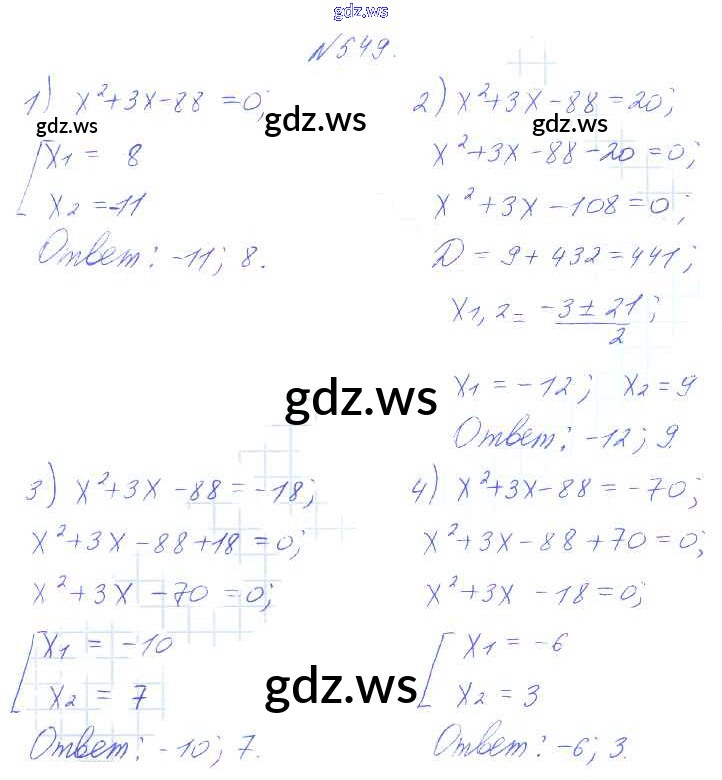 gdz.ws
№549.
1) x²+3x-88=0;
gdz.ws
gdz.ws
[x₁ = 8
x₂ =-11
Ответ: -11; 8.
2) x²+3x-88=20;
gdz.ws
x²+3x-88-20=0;
x²+3x-108=0;
D=9+432=441;
x₁,₂ = (-3±21)/2;
x₁=-12; x₂=9
Ответ: -12; 9.
gdz.ws
3) x²+3x-88=-18;
x²+3x-88+18=0;
x²+3x-70=0;
[x₁ = -10
x₂ = 7
Ответ: -10; 7.
4) x²+3x-88=-70;
x²+3x-88+70=0;
x²+3x-18=0;
[x₁=-6
x₂=3
Ответ: -6; 3.
gdz.ws
gdz.ws